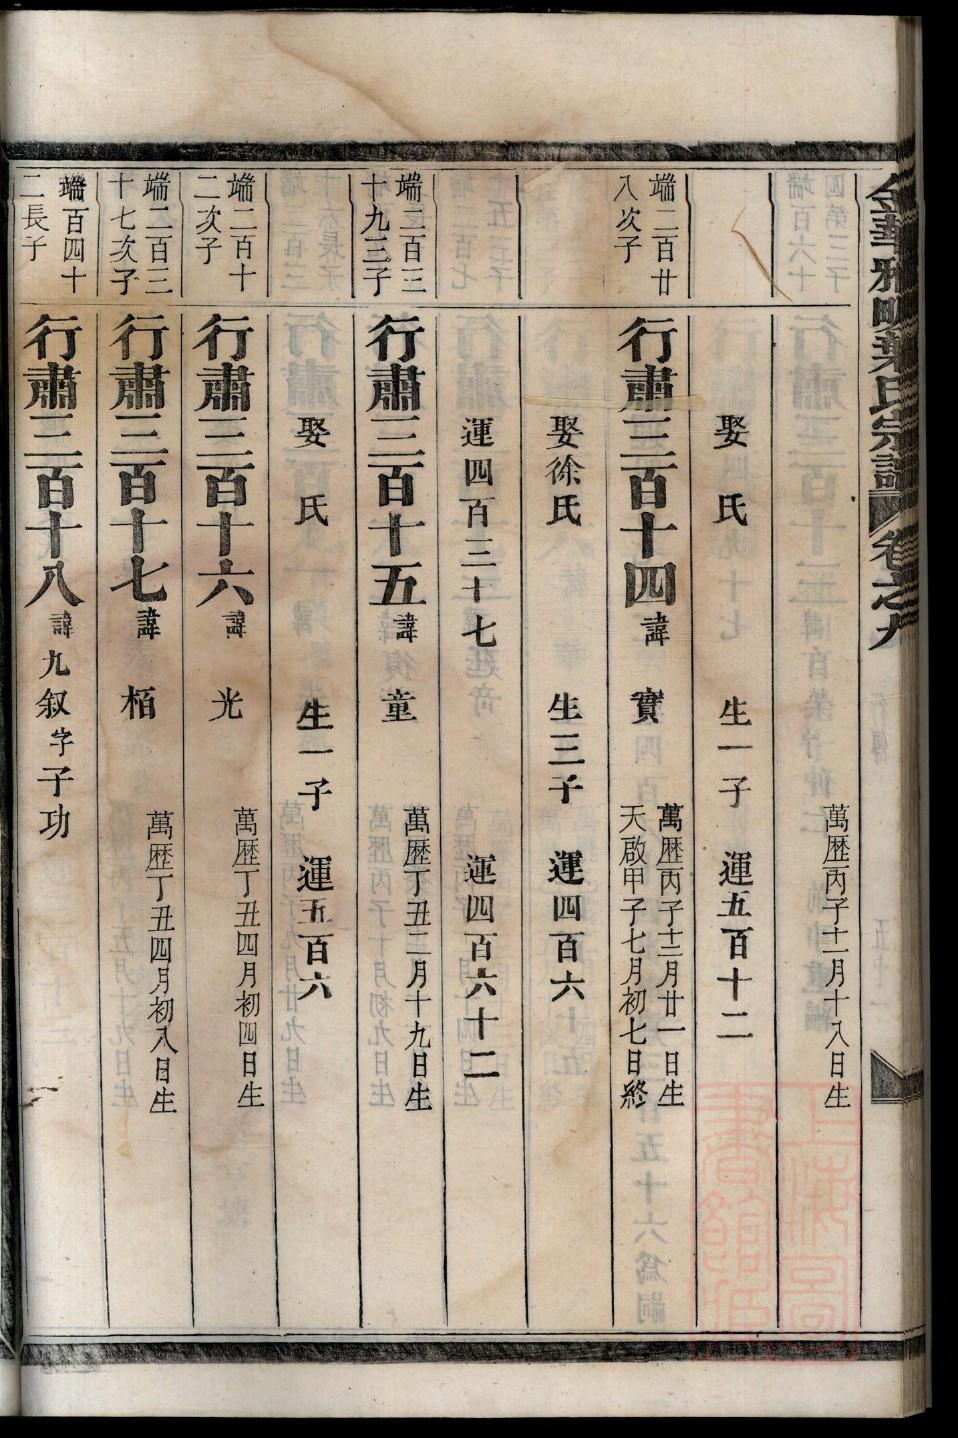 金華雅畈葉氏宗譜 卷之九
萬歷丙子十一月十八日生
娶 氏 生一子 運五百十二
端二百廿
八次子
行肅三百十四諱 實
萬歷丙子十二月廿一日生
天啟甲子七月初七日終
娶徐氏 生三子 運四百六
運四百三十七 運四百六十二
端二百三
十九三子
行肅三百十五諱 童 萬歷丁丑二月十九日生
娶 氏 生一子 運五百六
端二百十
二次子
行肅三百十六諱 光 萬歷丁丑四月初四日生
端二百三
十七次子
行肅三百十七諱 栢 萬歷丁丑四月初八日生
端百四十
二長子
行肅三百十八諱 九叙字子功